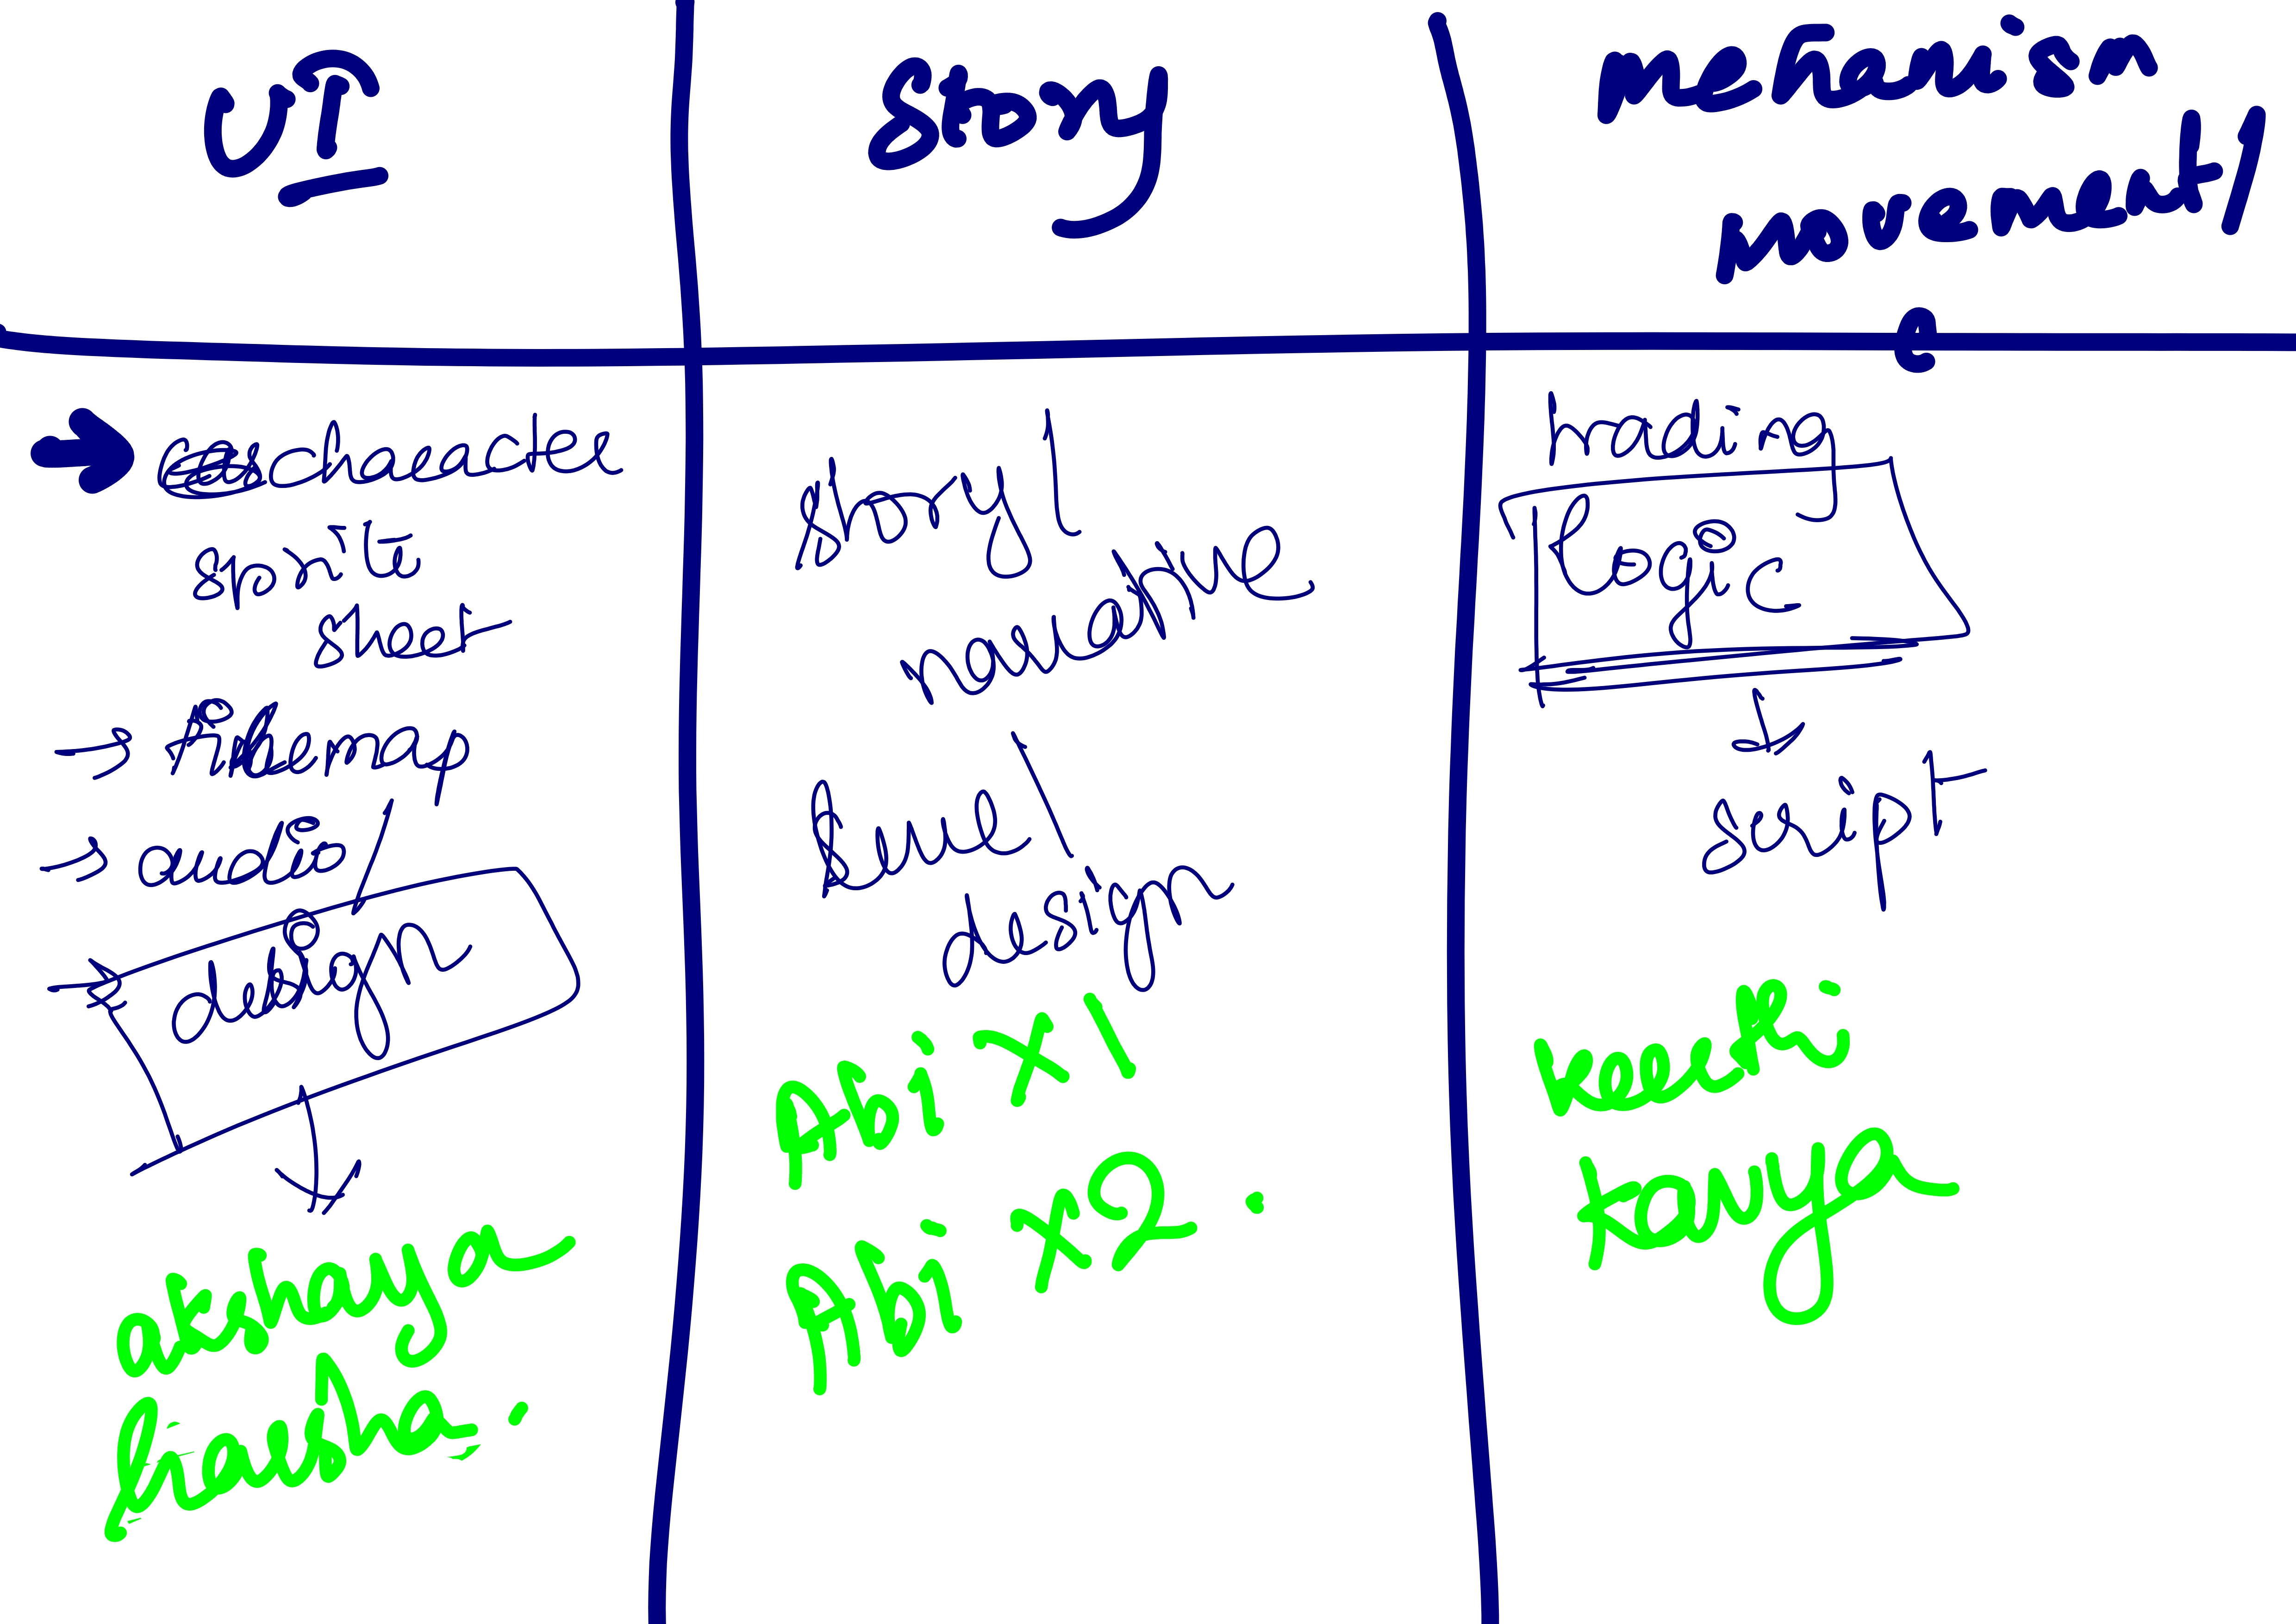 UI
story
mechanism
movement/
character
sprite
sheet
→ tilemap
→ audio/
→ design
akshaya
harsha.
story/
narrative
level
design
Abi x1
Abi x2.
trading
logic
script
keerthi
kavya